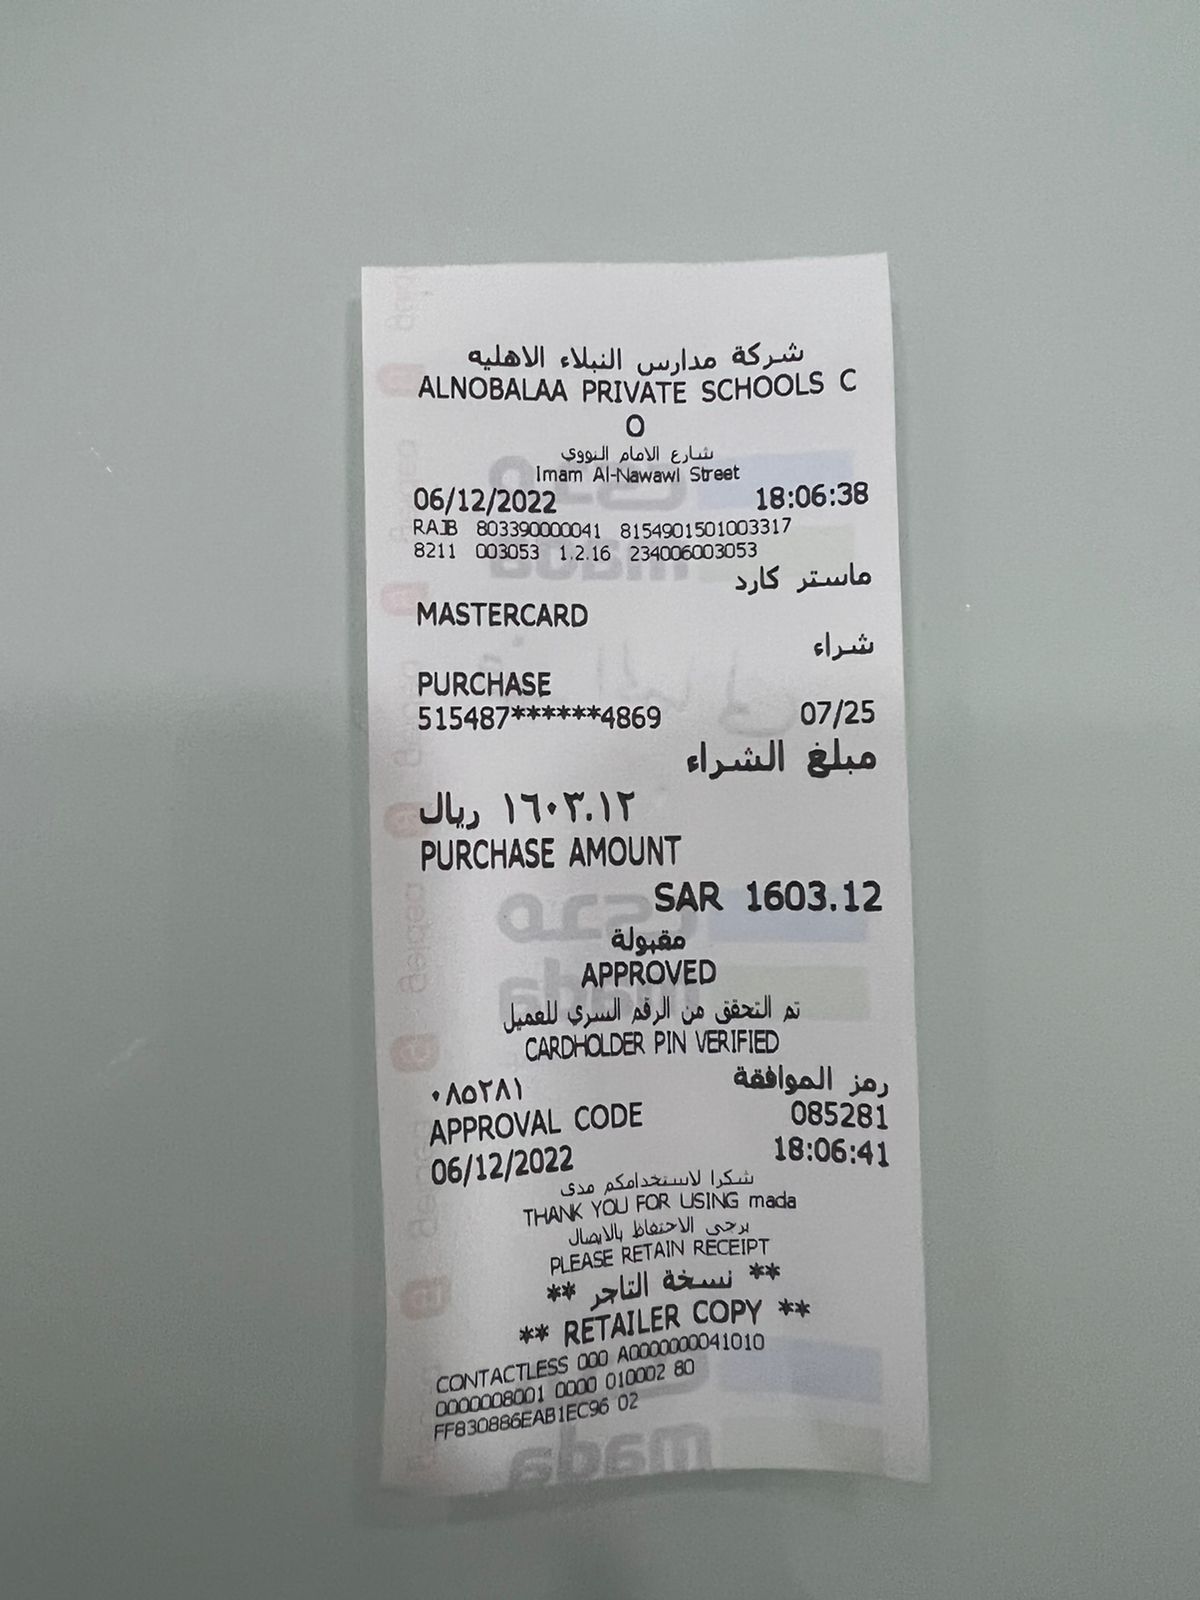 شركة مدارس النبلاء الاهليه
ALNOBALAA PRIVATE SCHOOLS C
O
شارع الامام النووي
Imam Al-Nawawi Street
06/12/2022 18:06:38
RAJB 803390000041 8154901501003317
8211 003053 1.2.16 234006003053
ماستر كارد
MASTERCARD
شراء
PURCHASE
515487******4869 07/25
مبلغ الشراء
١٦٠٣.١٢ ريال
PURCHASE AMOUNT
SAR 1603.12
مقبولة
APPROVED
تم التحقق من الرقم السري للعميل
CARDHOLDER PIN VERIFIED
رمز الموافقة ٠٨٥٢٨١
APPROVAL CODE 085281
06/12/2022 18:06:41
شكرا لاستخدامكم مدى
THANK YOU FOR USING mada
يرجى الاحتفاظ بالايصال
PLEASE RETAIN RECEIPT
** نسخة التاجر **
** RETAILER COPY **
CONTACTLESS 000 A0000000041010
0000008001 0000 010002 80
FF830886EAB1EC96 02